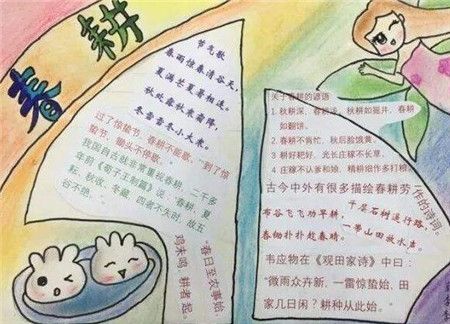 春耕
节气歌
春雨惊春清谷天，
夏满芒夏暑相连。
秋处露秋寒霜降，
冬雪雪冬小大寒。
过了惊蛰节，春耕不能歇。"到了惊
蛰节，锄头不停歇。"
我国自古就非常重视春耕，二千多
年前《荀子王制篇》说："春耕、夏
耘、秋收、冬藏，四者不失时，故五
谷不绝。"
"春日至农事始，
鸡未鸣 耕者起。
关于春耕的谚语
1 秋耕深，春耕浅，秋耕如掘井，春耕
如翻饼。
2 春耕不肯忙，秋后脸饿黄。
3 耕好耙好，光长庄稼不长草。
4 庄稼不认爹和娘，精耕细作多打粮。
古今中外有很多描绘春耕劳作的诗词。
布谷飞飞劝早耕，
春锄扑扑趁春晴。
千层石树遥行路，
一带山田放水声。
韦应物在《观田家诗》中曰：
"微雨众卉新，一雷惊蛰始。田
家几日闲？耕种从此始。"